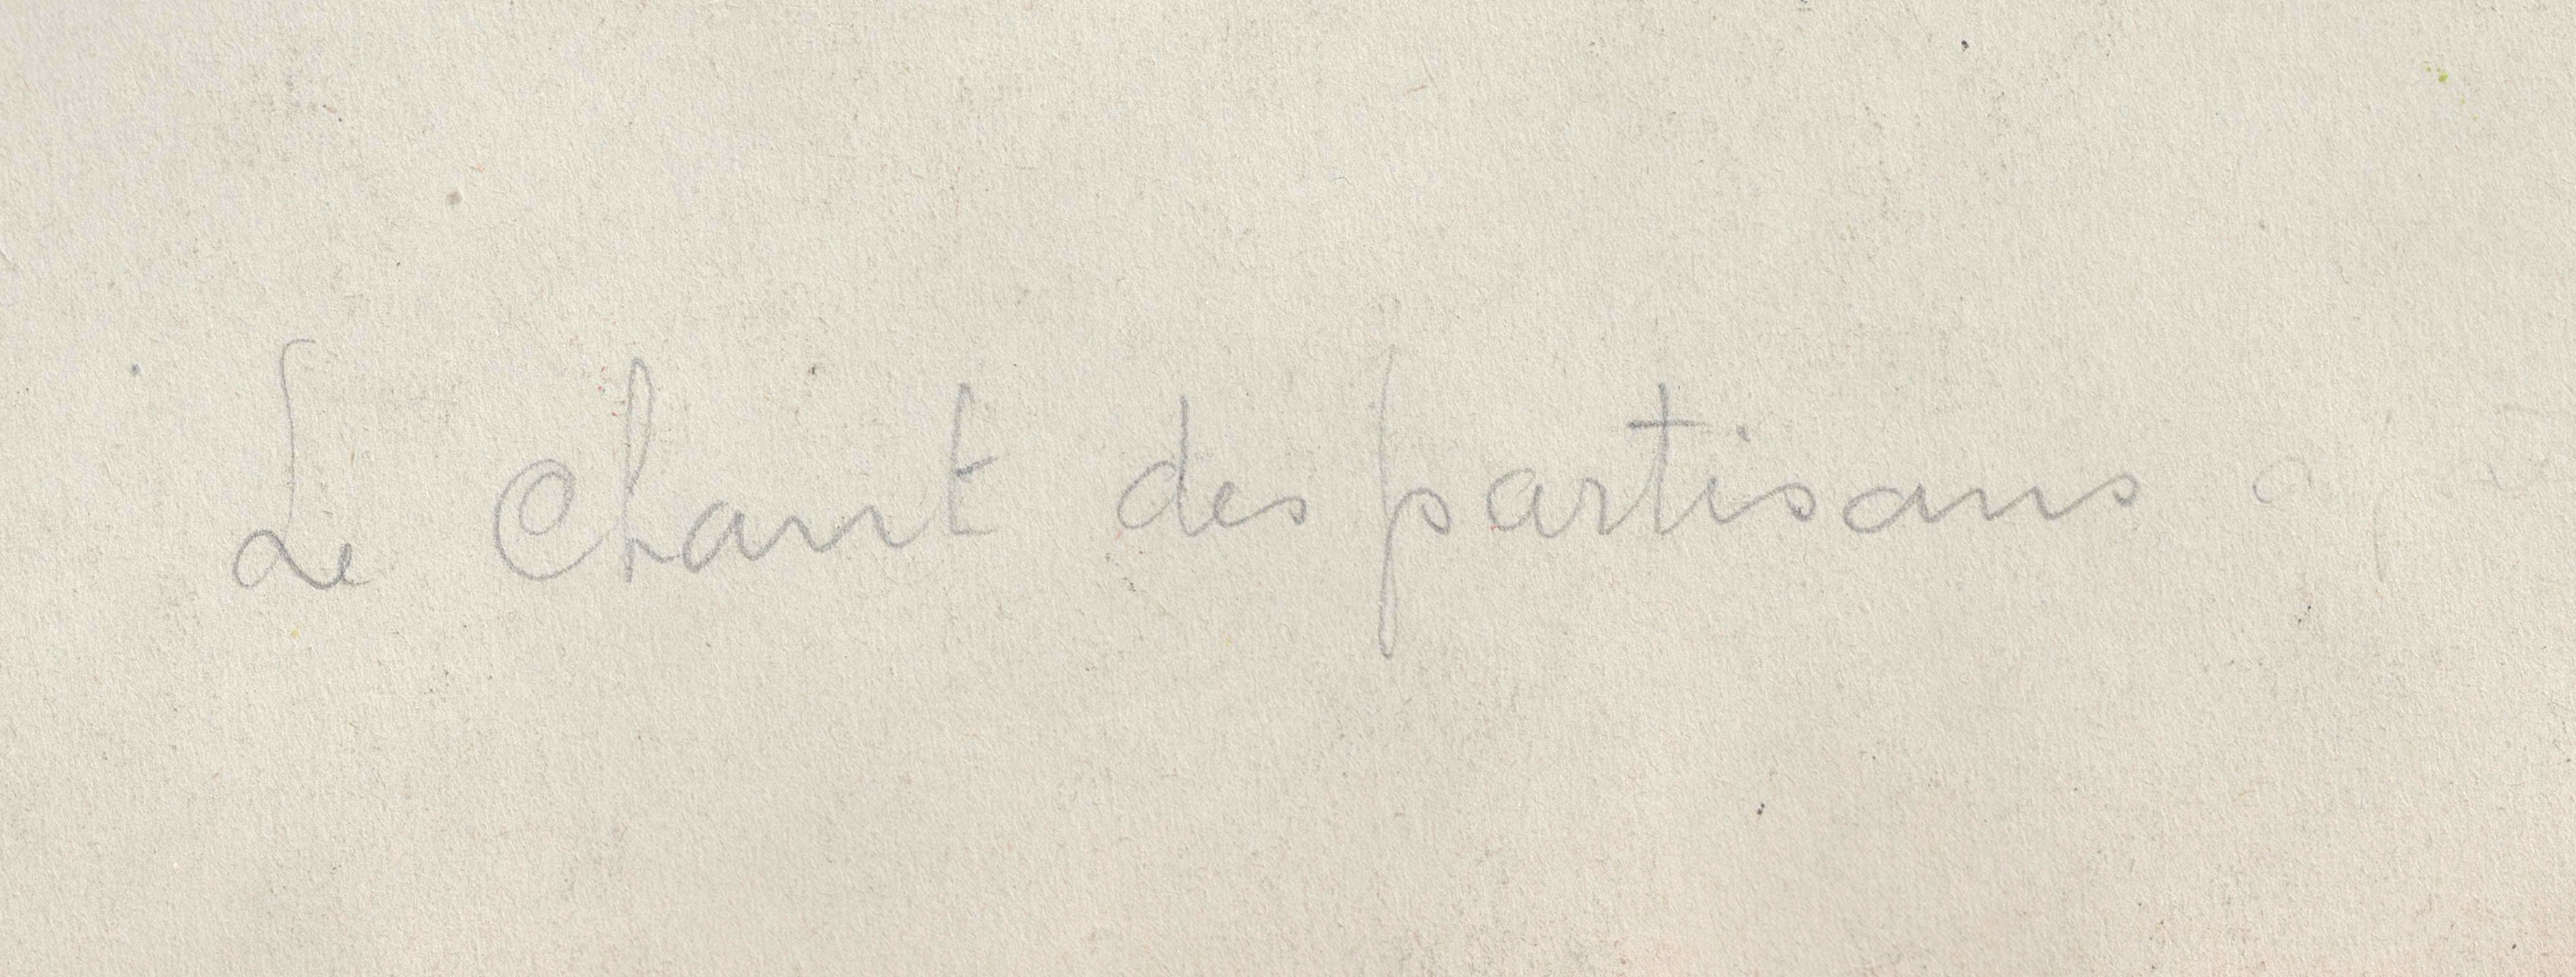 Le Chant des partisans